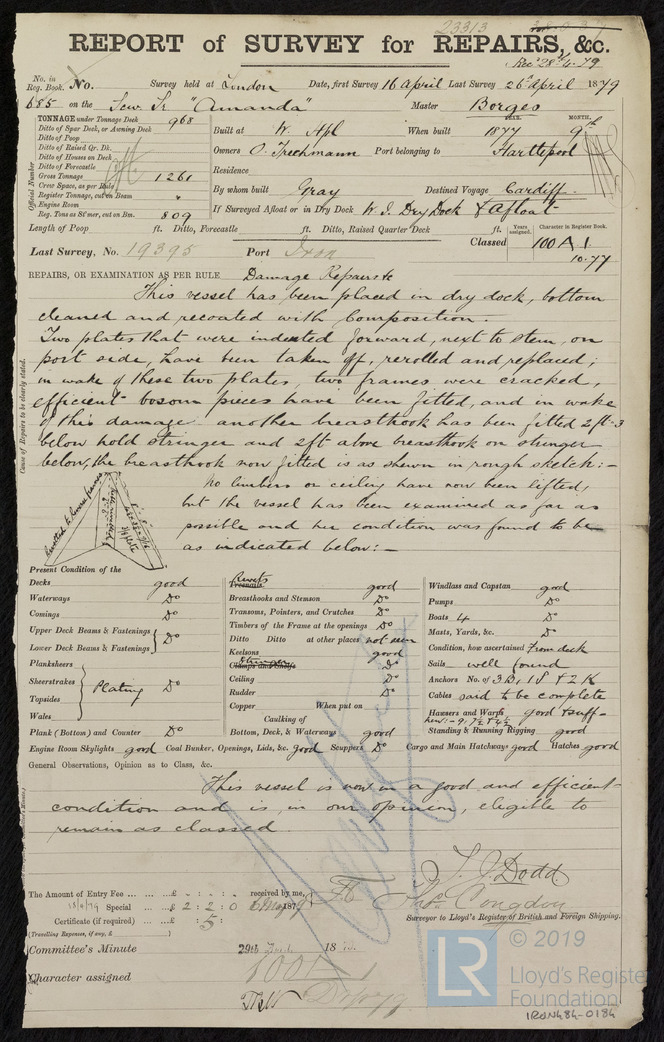 23313
REPORT OF SURVEY for REPAIRS, &c.
Rec' 28/4/79
No. in Reg. Book. No. Survey held at London Date, first Survey 16 April Last Survey 26 April 1879
685 on the Scw Sr "Amanda" Master Borges
TONNAGE under Tonnage Deck 968
Ditto of Spar Deck, or Awning Deck
Ditto of Poop
Ditto of Raised Qr. Dk.
Ditto of Houses on Deck
Ditto of Forecastle
Gross Tonnage 1261
Crew Space, as per Rule
Register Tonnage, cut on Beam
Engine Room
Reg. Tons as St'mer, cut on Bm. 809
Official Number
Built at W. Hpl When built YEAR. 1877 MONTH. 9th
Owners O. Trechmann Port belonging to Hartlepool
Residence
By whom built Gray Destined Voyage Cardiff.
If Surveyed Afloat or in Dry Dock W. I. Dry Dock & Afloat
Length of Poop ft. Ditto, Forecastle ft. Ditto, Raised Quarter Deck ft.
Last Survey, No. 19395 Port Iron
Classed Years assigned. Character in Register Book. 100 A 1
10.77
REPAIRS, OR EXAMINATION AS PER RULE Damage Repairs &c
Cause of Repairs to be clearly stated.
This vessel has been placed in dry dock, bottom
cleaned and recoated with Composition.
Two plates that were indented forward, next to stem, on
port side, have been taken off, rerolled and replaced;
in wake of these two plates, two frames were cracked,
efficient bosom pieces have been fitted, and in wake
of this damage another breasthook has been fitted 2 ft-3
below hold stringer and 2ft above breasthook on stringer
below, the breasthook now fitted is as shewn in rough sketch:-
No limbers or ceiling have now been lifted,
but the vessel has been examined as far as
possible and her condition was found to be
as indicated below:-
Rivetted to reverse frames
Present Condition of the
Decks good
Waterways Do
Comings Do
Upper Deck Beams & Fastenings
Lower Deck Beams & Fastenings Do
Planksheers
Sheerstrakes
Topsides
Wales
Plating Do
Plank (Bottom) and Counter Do
Rivets
Treenails good
Breasthooks and Stemson Do
Transoms, Pointers, and Crutches Do
Timbers of the Frame at the openings Do
Ditto Ditto at other places not seen
Keelsons good
Stringers
Clamps and Shelfs Do
Ceiling Do
Rudder Do
Copper When put on
Caulking of
Bottom, Deck, & Waterways good
Windlass and Capstan good
Pumps Do
Boats 4 Do
Masts, Yards, &c. Do
Condition, how ascertained From deck
Sails well found
Anchors No. of 3 B, 1 S & 2 K
Cables said to be complete
Hawsers and Warps good & suff-
Standing & Running Rigging good
Engine Room Skylights good Coal Bunker, Openings, Lids, &c. good Scuppers Do Cargo and Main Hatchways good Hatches good
General Observations, Opinion as to Class, &c.
This vessel is now in a good and efficient
condition and is, in our opinion, eligible to
remain as classed.
The Amount of Entry Fee ... £ - : - : - received by me,
Special ... £ 2 : 2 : 0
Certificate (if required) ... 5 :
(Travelling Expenses, if any, £ )
T. J. Dodd
Thos. Congdon
Surveyor to Lloyd's Register of British and Foreign Shipping.
Committee's Minute 29th 18
Character assigned 100 A 1
© 2019
LR
Lloyd's Register
Foundation
IRON484-0184